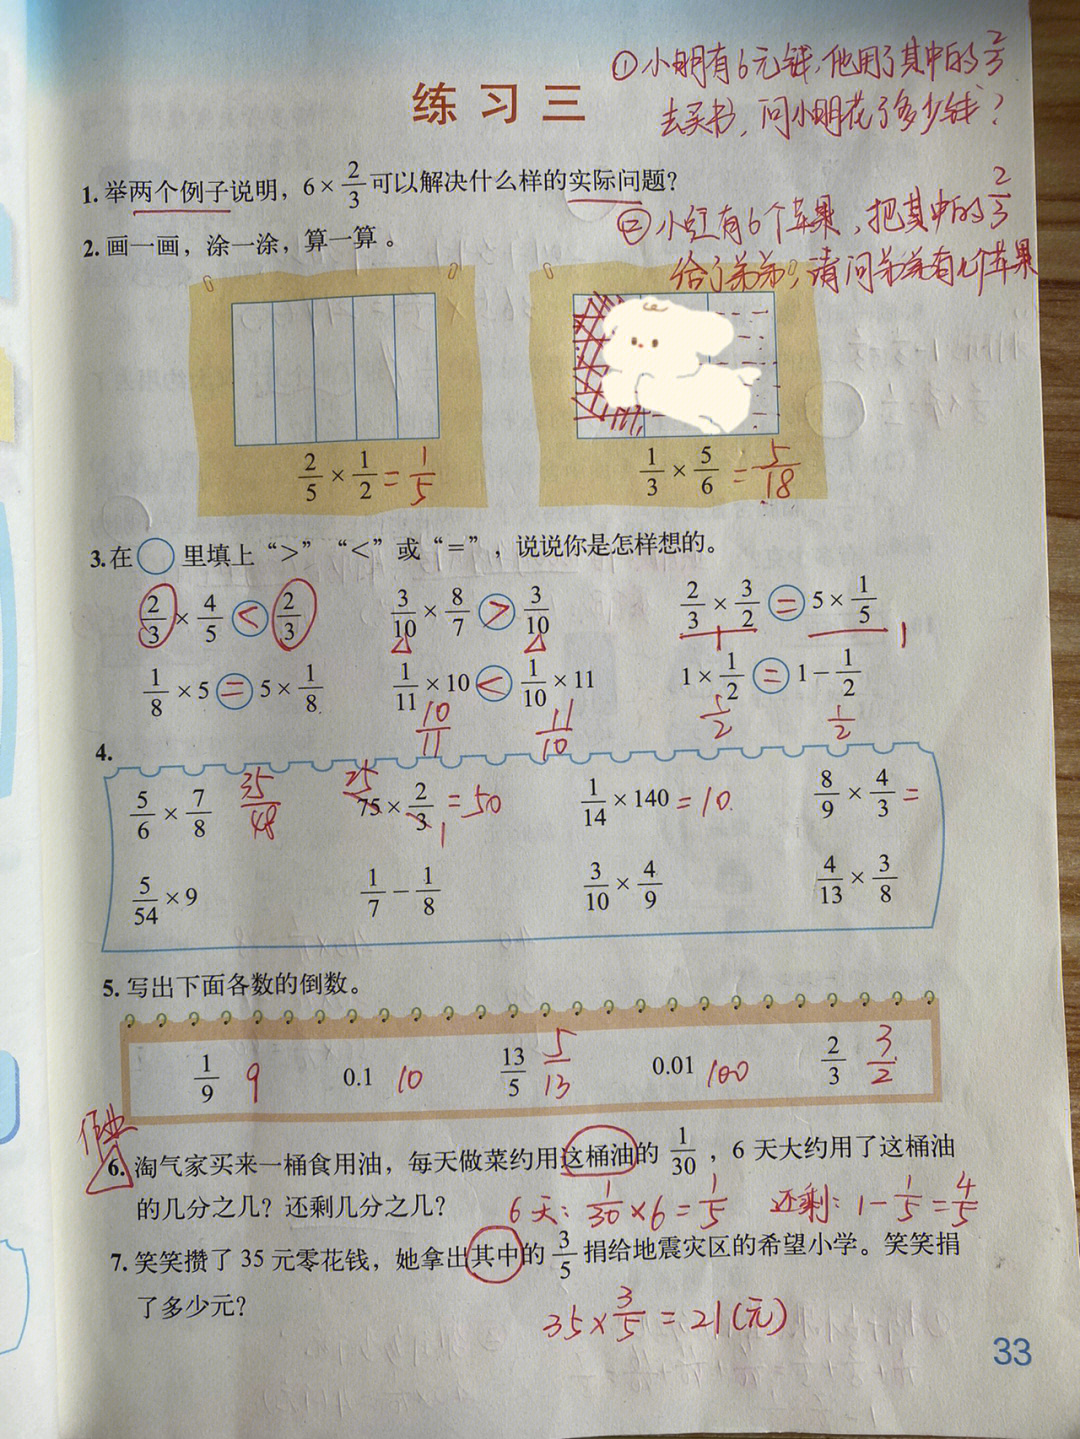 ①小明有6元钱,他用了其中的2/3
去买书,问小明花了多少钱?
练习三
1. 举两个例子说明,6×2/3可以解决什么样的实际问题?
②小红有6个苹果,把其中的2/3
给了弟弟,请问弟弟有几个苹果
2. 画一画,涂一涂,算一算。
2/5 × 1/2 = 1/5
1/3 × 5/6 = 5/18
3. 在○里填上“>”“<”或“=”,说说你是怎样想的。
2/3 × 4/5 < 2/3 3/10 × 8/7 > 3/10 2/3 × 3/2 = 5 × 1/5
1 1
1/8 × 5 = 5 × 1/8 1/11 × 10 < 1/10 × 11 1 × 1/2 = 1 − 1/2
10/11 11/10 1/2 1/2
4.
5/6 × 7/8 35/48 25 75 × 2/3 = 50 1 1/14 × 140 = 10 8/9 × 4/3 =
5/54 × 9 1/7 − 1/8 3/10 × 4/9 4/13 × 3/8
5. 写出下面各数的倒数。
1/9 9 0.1 10 13/5 5/13 0.01 100 2/3 3/2
作业
6. 淘气家买来一桶食用油,每天做菜约用这桶油的1/30,6天大约用了这桶油
的几分之几?还剩几分之几? 6天:1/30×6=1/5 还剩:1−1/5=4/5
7. 笑笑攒了35元零花钱,她拿出其中的3/5捐给地震灾区的希望小学。笑笑捐
了多少元?
35×3/5=21(元)
33